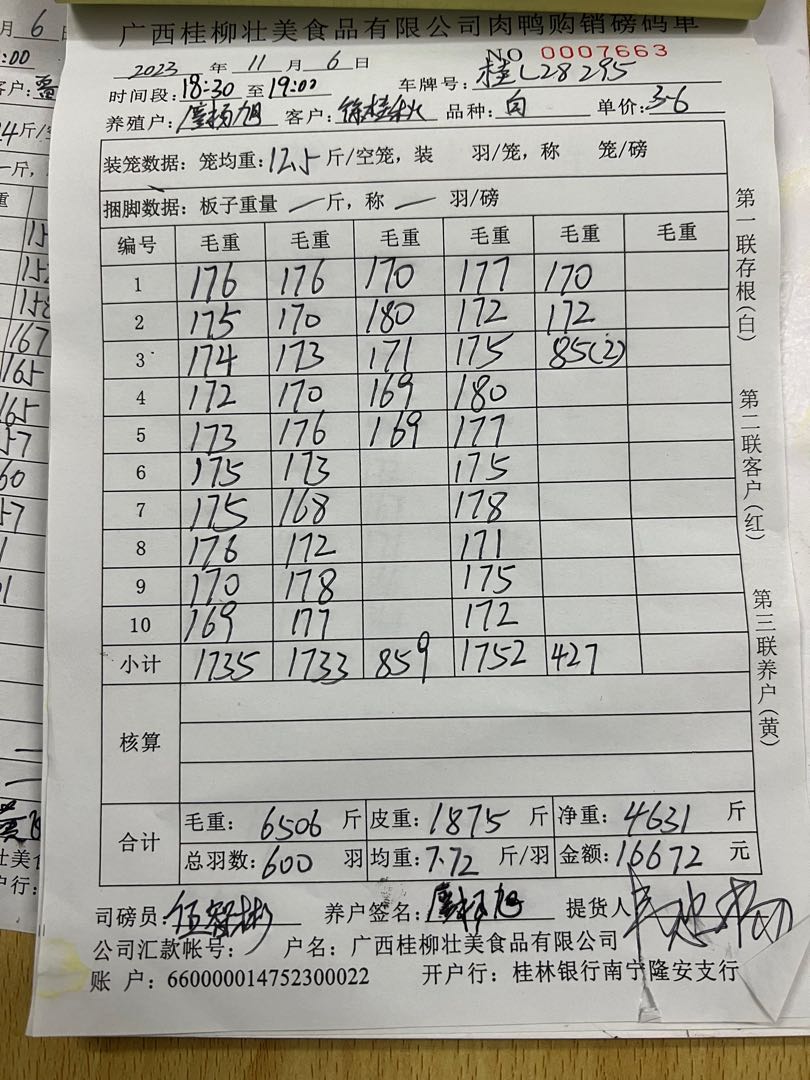 广西桂柳壮美食品有限公司肉鸭购销磅码单
2023 年 11 月 6 日 NO 0007663
时间段: 18:30 至 19:00 车牌号: 桂L28295
养殖户: 廖杨旭 客户: 徐桂秋 品种: 白 单价: 3.6
装笼数据: 笼均重: 12.5 斤/空笼, 装 羽/笼, 称 笼/磅
捆脚数据: 板子重量 — 斤, 称 — 羽/磅
编号 毛重 毛重 毛重 毛重 毛重 毛重
1 176 176 170 177 170
2 175 170 180 172 172
3 174 173 171 175 85(2)
4 172 170 169 180
5 173 176 169 177
6 175 173 175
7 175 168 178
8 176 172 171
9 170 178 175
10 169 177 172
小计 1735 1733 859 1752 427
核算
合计
毛重: 6506 斤 皮重: 1875 斤 净重: 4631 斤
总羽数: 600 羽 均重: 7.72 斤/羽 金额: 16672 元
司磅员: 养户签名: 廖杨旭 提货人
公司汇款帐号: 户名: 广西桂柳壮美食品有限公司
账 户: 660000014752300022 开户行: 桂林银行南宁隆安支行
第一联存根(白)
第二联客户(红)
第三联养户(黄)
月 6 日
:00
客户:
斤/空
167
165
165